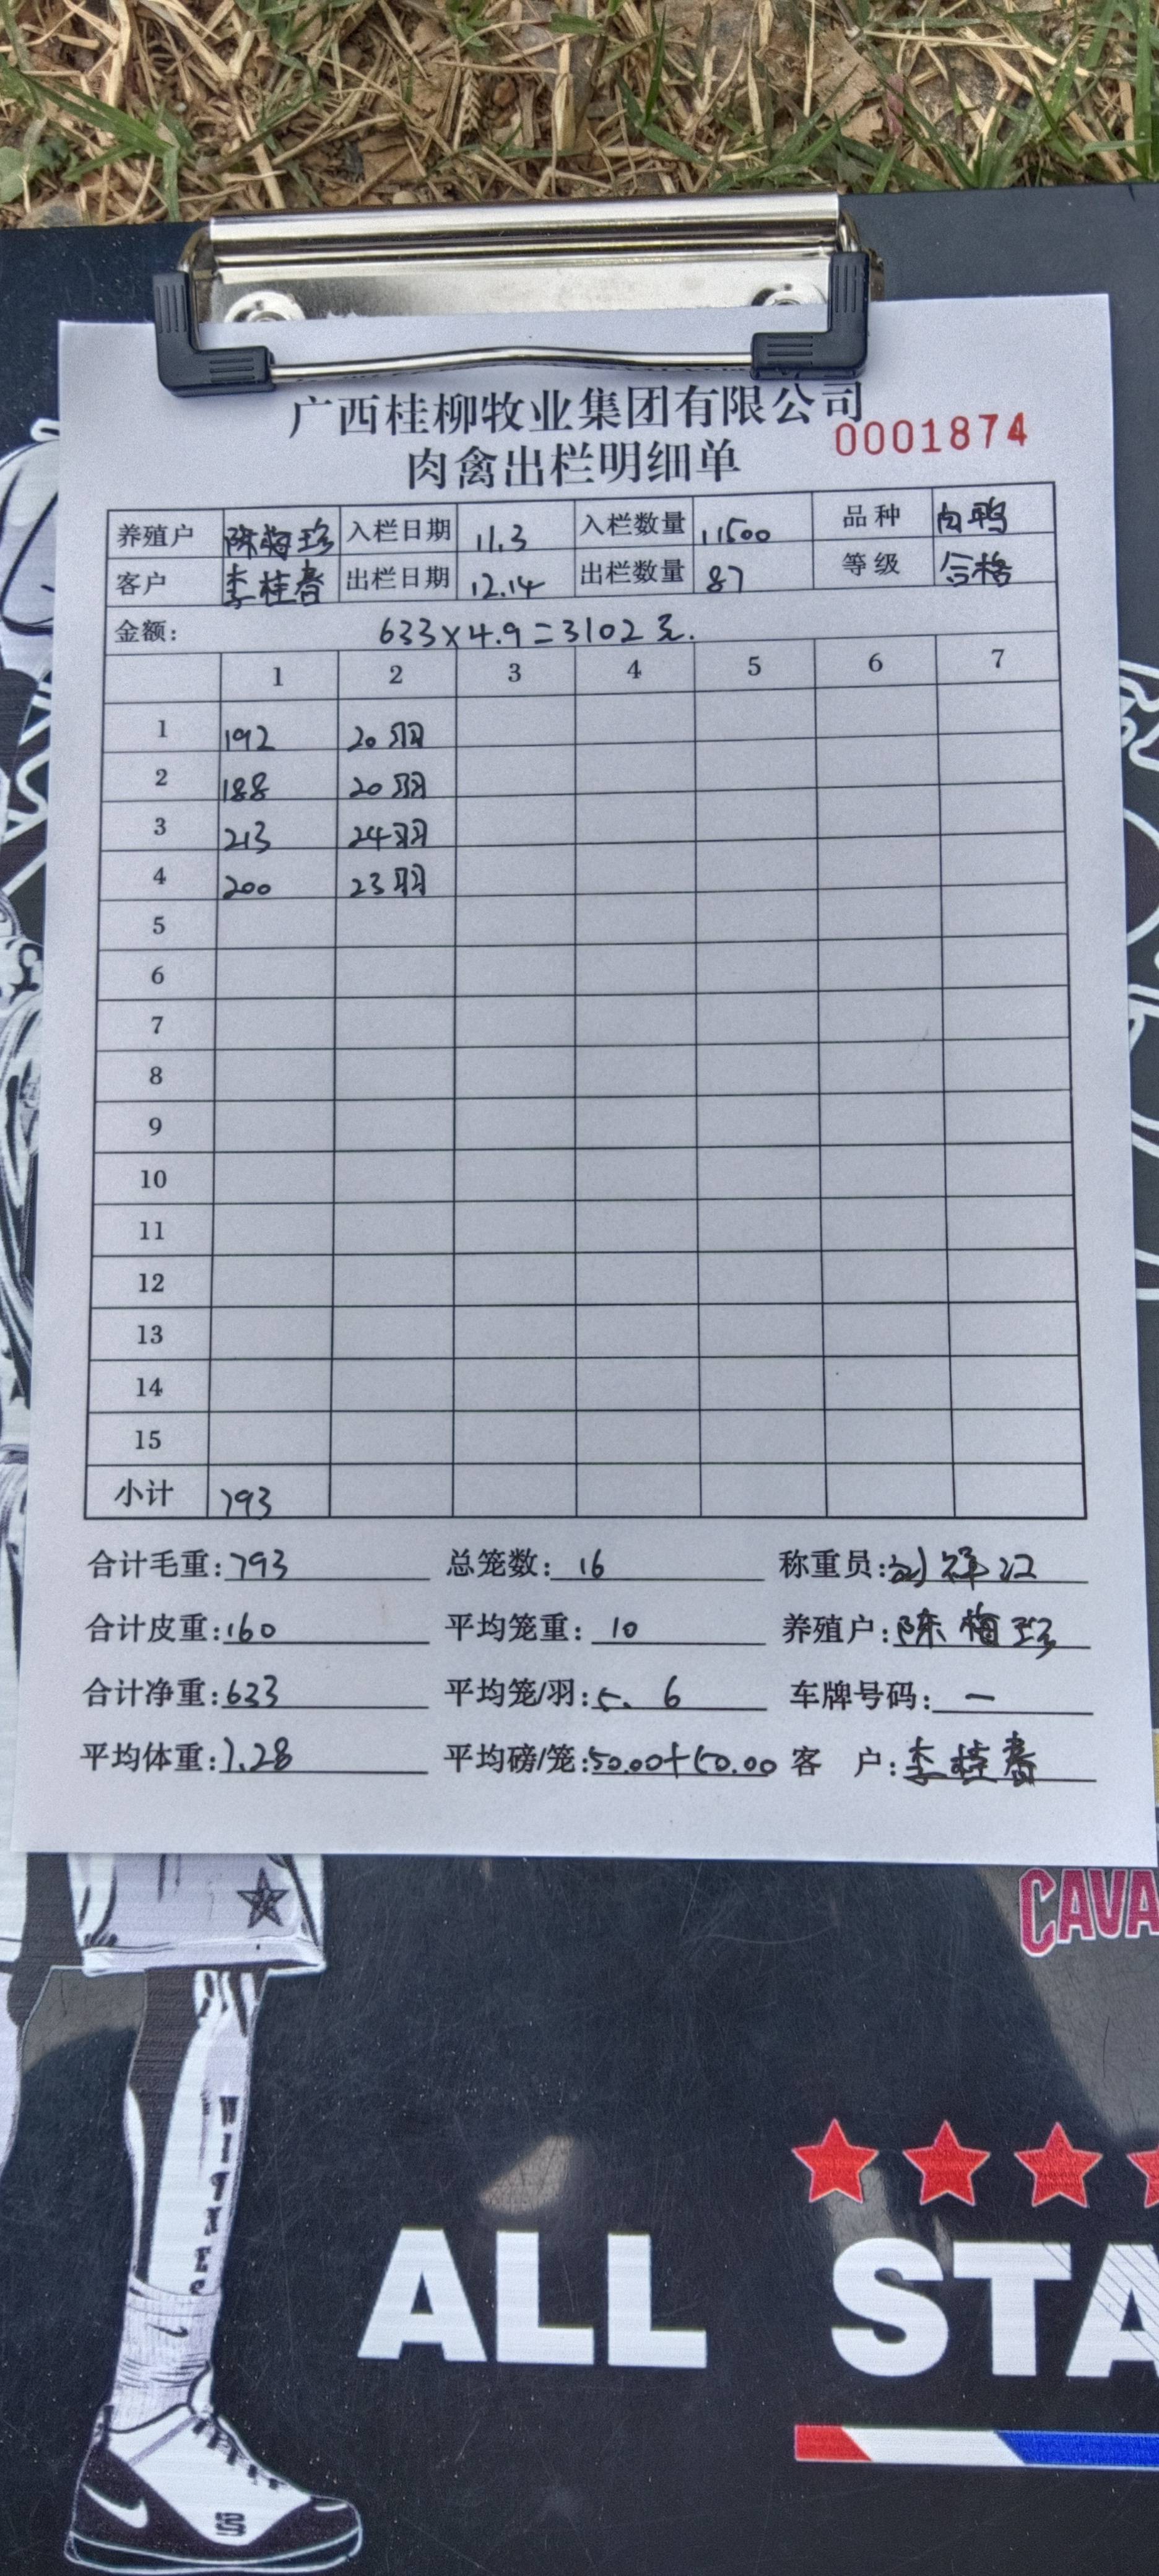 广西桂柳牧业集团有限公司
0001874
肉禽出栏明细单
养殖户 陈梅珍 入栏日期 11.3 入栏数量 11500 品种 白鸭
客户 李桂春 出栏日期 12.14 出栏数量 87 等级 合格
金额: 633×4.9=3102元.
1 2 3 4 5 6 7
1 192 20羽
2 188 20羽
3 213 24羽
4 200 23羽
5
6
7
8
9
10
11
12
13
14
15
小计 793
合计毛重:793 总笼数:16 称重员:刘祥江
合计皮重:160 平均笼重:10 养殖户:陈梅珍
合计净重:633 平均笼/羽:5.6 车牌号码:一
平均体重:7.28 平均磅/笼:50.00+50.00 客 户:李桂春
CAVA
ALL STA